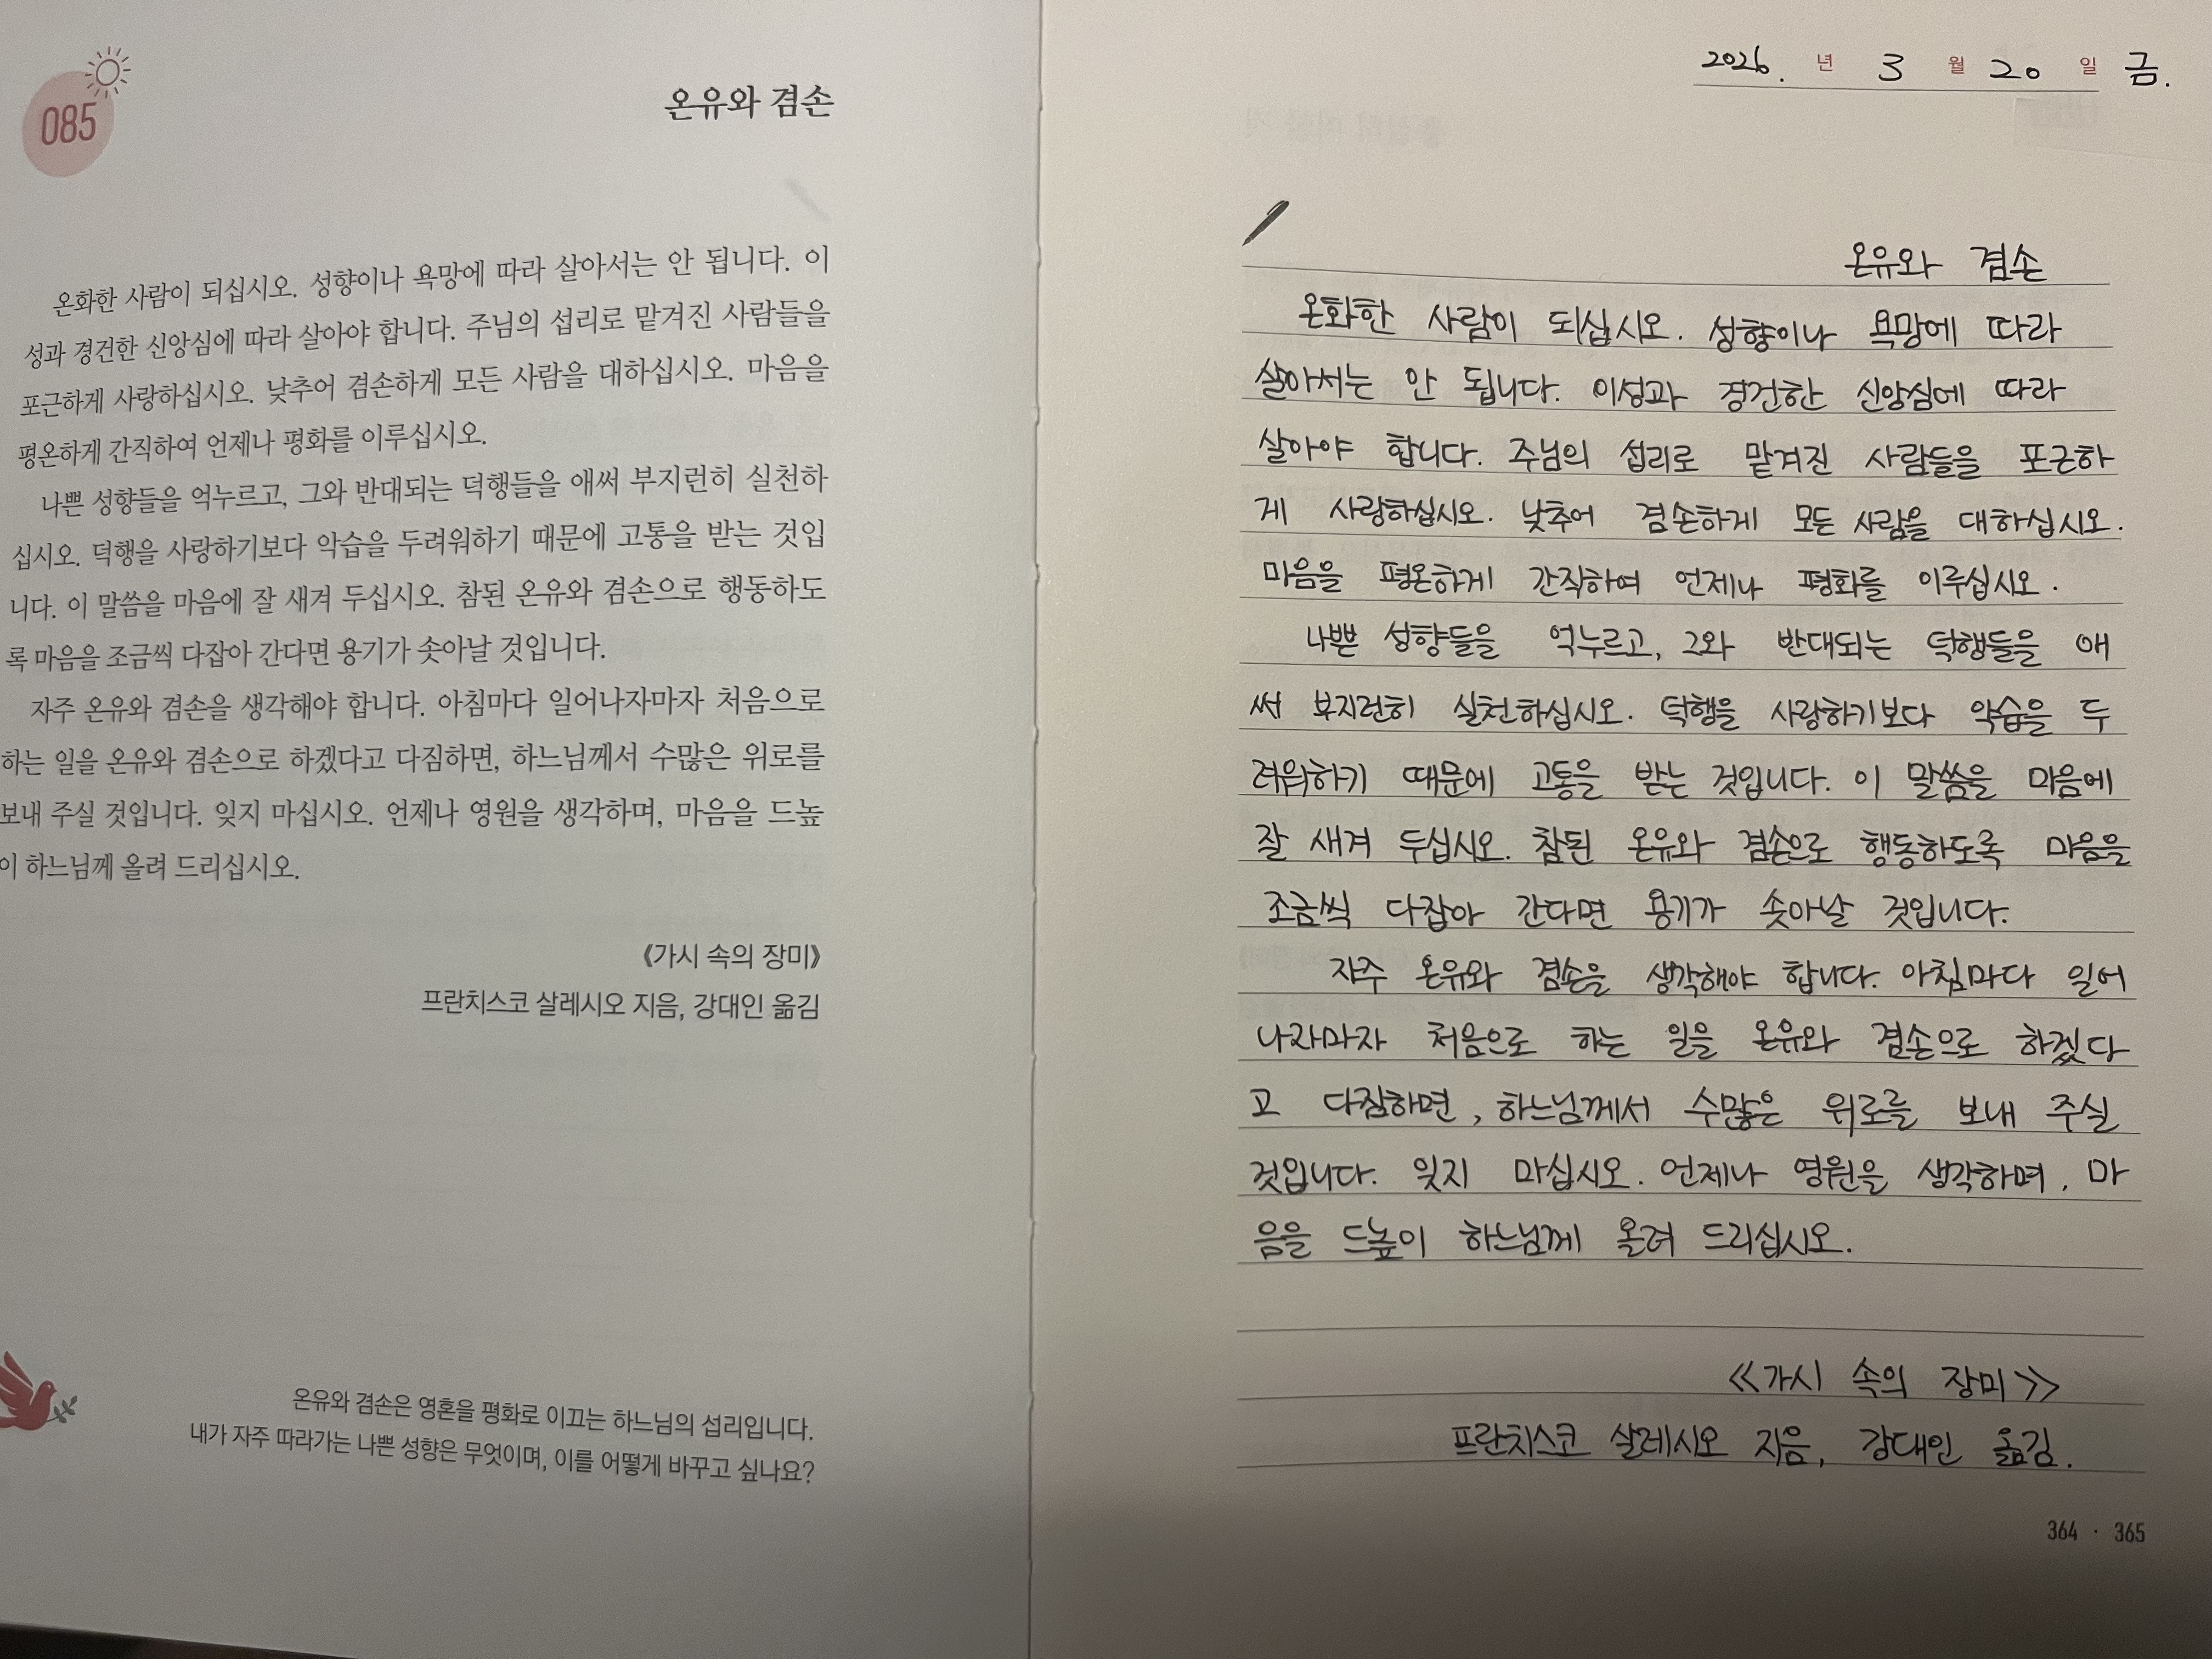 085
온유와 겸손
온화한 사람이 되십시오. 성향이나 욕망에 따라 살아서는 안 됩니다. 이
성과 경건한 신앙심에 따라 살아야 합니다. 주님의 섭리로 맡겨진 사람들을
포근하게 사랑하십시오. 낮추어 겸손하게 모든 사람을 대하십시오. 마음을
평온하게 간직하여 언제나 평화를 이루십시오.
나쁜 성향들을 억누르고, 그와 반대되는 덕행들을 애써 부지런히 실천하
십시오. 덕행을 사랑하기보다 악습을 두려워하기 때문에 고통을 받는 것입
니다. 이 말씀을 마음에 잘 새겨 두십시오. 참된 온유와 겸손으로 행동하도
록 마음을 조금씩 다잡아 간다면 용기가 솟아날 것입니다.
자주 온유와 겸손을 생각해야 합니다. 아침마다 일어나자마자 처음으로
하는 일을 온유와 겸손으로 하겠다고 다짐하면, 하느님께서 수많은 위로를
보내 주실 것입니다. 잊지 마십시오. 언제나 영원을 생각하며, 마음을 드높
이 하느님께 올려 드리십시오.
《가시 속의 장미》
프란치스코 살레시오 지음, 강대인 옮김
온유와 겸손은 영혼을 평화로 이끄는 하느님의 섭리입니다.
내가 자주 따라가는 나쁜 성향은 무엇이며, 이를 어떻게 바꾸고 싶나요?
2026. 년 3 월 20 일 금.
온유와 겸손
온화한 사람이 되십시오. 성향이나 욕망에 따라
살아서는 안 됩니다. 이성과 경건한 신앙심에 따라
살아야 합니다. 주님의 섭리로 맡겨진 사람들을 포근하
게 사랑하십시오. 낮추어 겸손하게 모든 사람을 대하십시오.
마음을 평온하게 간직하여 언제나 평화를 이루십시오.
나쁜 성향들을 억누르고, 그와 반대되는 덕행들을 애
써 부지런히 실천하십시오. 덕행을 사랑하기보다 악습을 두
려워하기 때문에 고통을 받는 것입니다. 이 말씀을 마음에
잘 새겨 두십시오. 참된 온유와 겸손으로 행동하도록 마음을
조금씩 다잡아 간다면 용기가 솟아날 것입니다.
자주 온유와 겸손을 생각해야 합니다. 아침마다 일어
나자마자 처음으로 하는 일을 온유와 겸손으로 하겠다
고 다짐하면, 하느님께서 수많은 위로를 보내 주실
것입니다. 잊지 마십시오. 언제나 영원을 생각하며, 마
음을 드높이 하느님께 올려 드리십시오.
<<가시 속의 장미>>
프란치스코 살레시오 지음, 강대인 옮김.
364 · 365